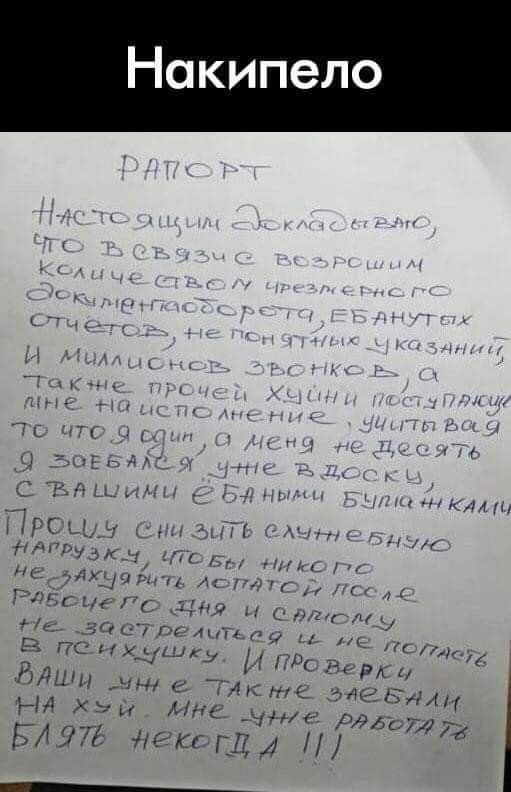 Накипело
РАПОРТ
Настоящим докладываю,
что в связи с возрошим
количеством чрезмерного
документооборота, ЕБАНУТЫХ
отчётов, не понятных указаний,
и миллионов звонков, а
также прочей хуйни поступающе
мне на исполнение, учитывая
то что я один, а меня не десять
Я ЗАЕБАЛСЯ уже в доску,
с вашими ёбаными бумажками
Прошу снизить служебную
нагрузку, чтобы никого
не захуярить лопатой после
рабочего дня и самому
не застрелиться и не попасть
в психушку. И проверки
ваши уже также заебали
на хуй. Мне уже работать
БЛЯТЬ некогда !!!